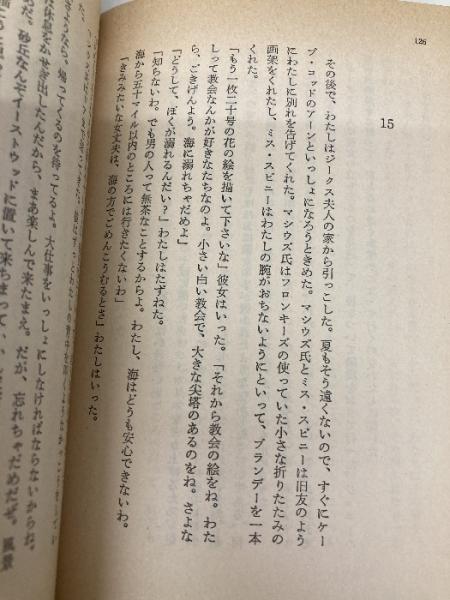 126
15
その後で、わたしはジークス夫人の家から引っこした。夏もそう遠くないので、すぐにケー
プ・コッドのアーンといっしょになろうときめた。マシウズ氏とミス・スピニーは旧友のよう
にわたしに別れを告げてくれた。マシウズ氏はフロンキーズの使っていた小さな折りたたみの
画架をくれたし、ミス・スピニーはわたしの腕がおちないようにといって、ブランデーを一本
くれた。
「もう一枚二十号の花の絵を描いて下さいな」彼女はいった。「それから教会の絵をね。わた
しって教会なんかが好きなたちなのよ。小さい白い教会で、大きな尖塔のあるのをね。さよな
ら、ごきげんよう。海に溺れちゃだめよ」
「どうして、ぼくが溺れるんだい?」わたしはたずねた。
「知らないわ。でも男の人って無茶なことするからよ。わたし、海はどうも安心できないわ。
海から五十マイル以内のところには行きたくないわ」
「きみみたいな女丈夫は、海の方でごめんこうむるとさ」わたしはいった。
帰ってくるのを待ってるよ。大仕事をいっしょにしなければならないからね。
休息をかせぎ出したんだから、まあ楽しんで来たまえ。だが、忘れちゃだめだぜ。風景
だ。砂丘なんぞイーストウッドに置いて来ちまって